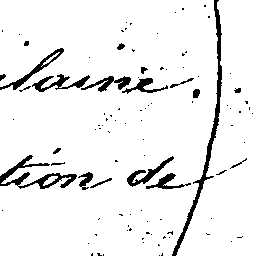 ilaine.
tion de